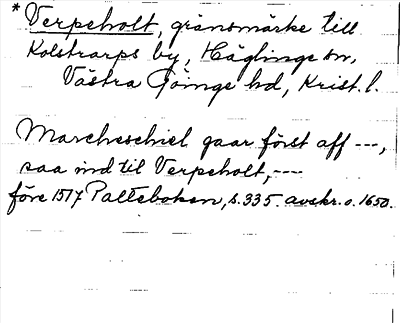 * Verpeholt, gränsmärke till
Kolstrarps by, Häglinge sn,
Västra Göinge hd, Krist. l.
Marcheschiel gaar först aff ---,
saa ind til Verpeholt, ---
före 1517 Palteboken, s. 335. avskr. o. 1650.